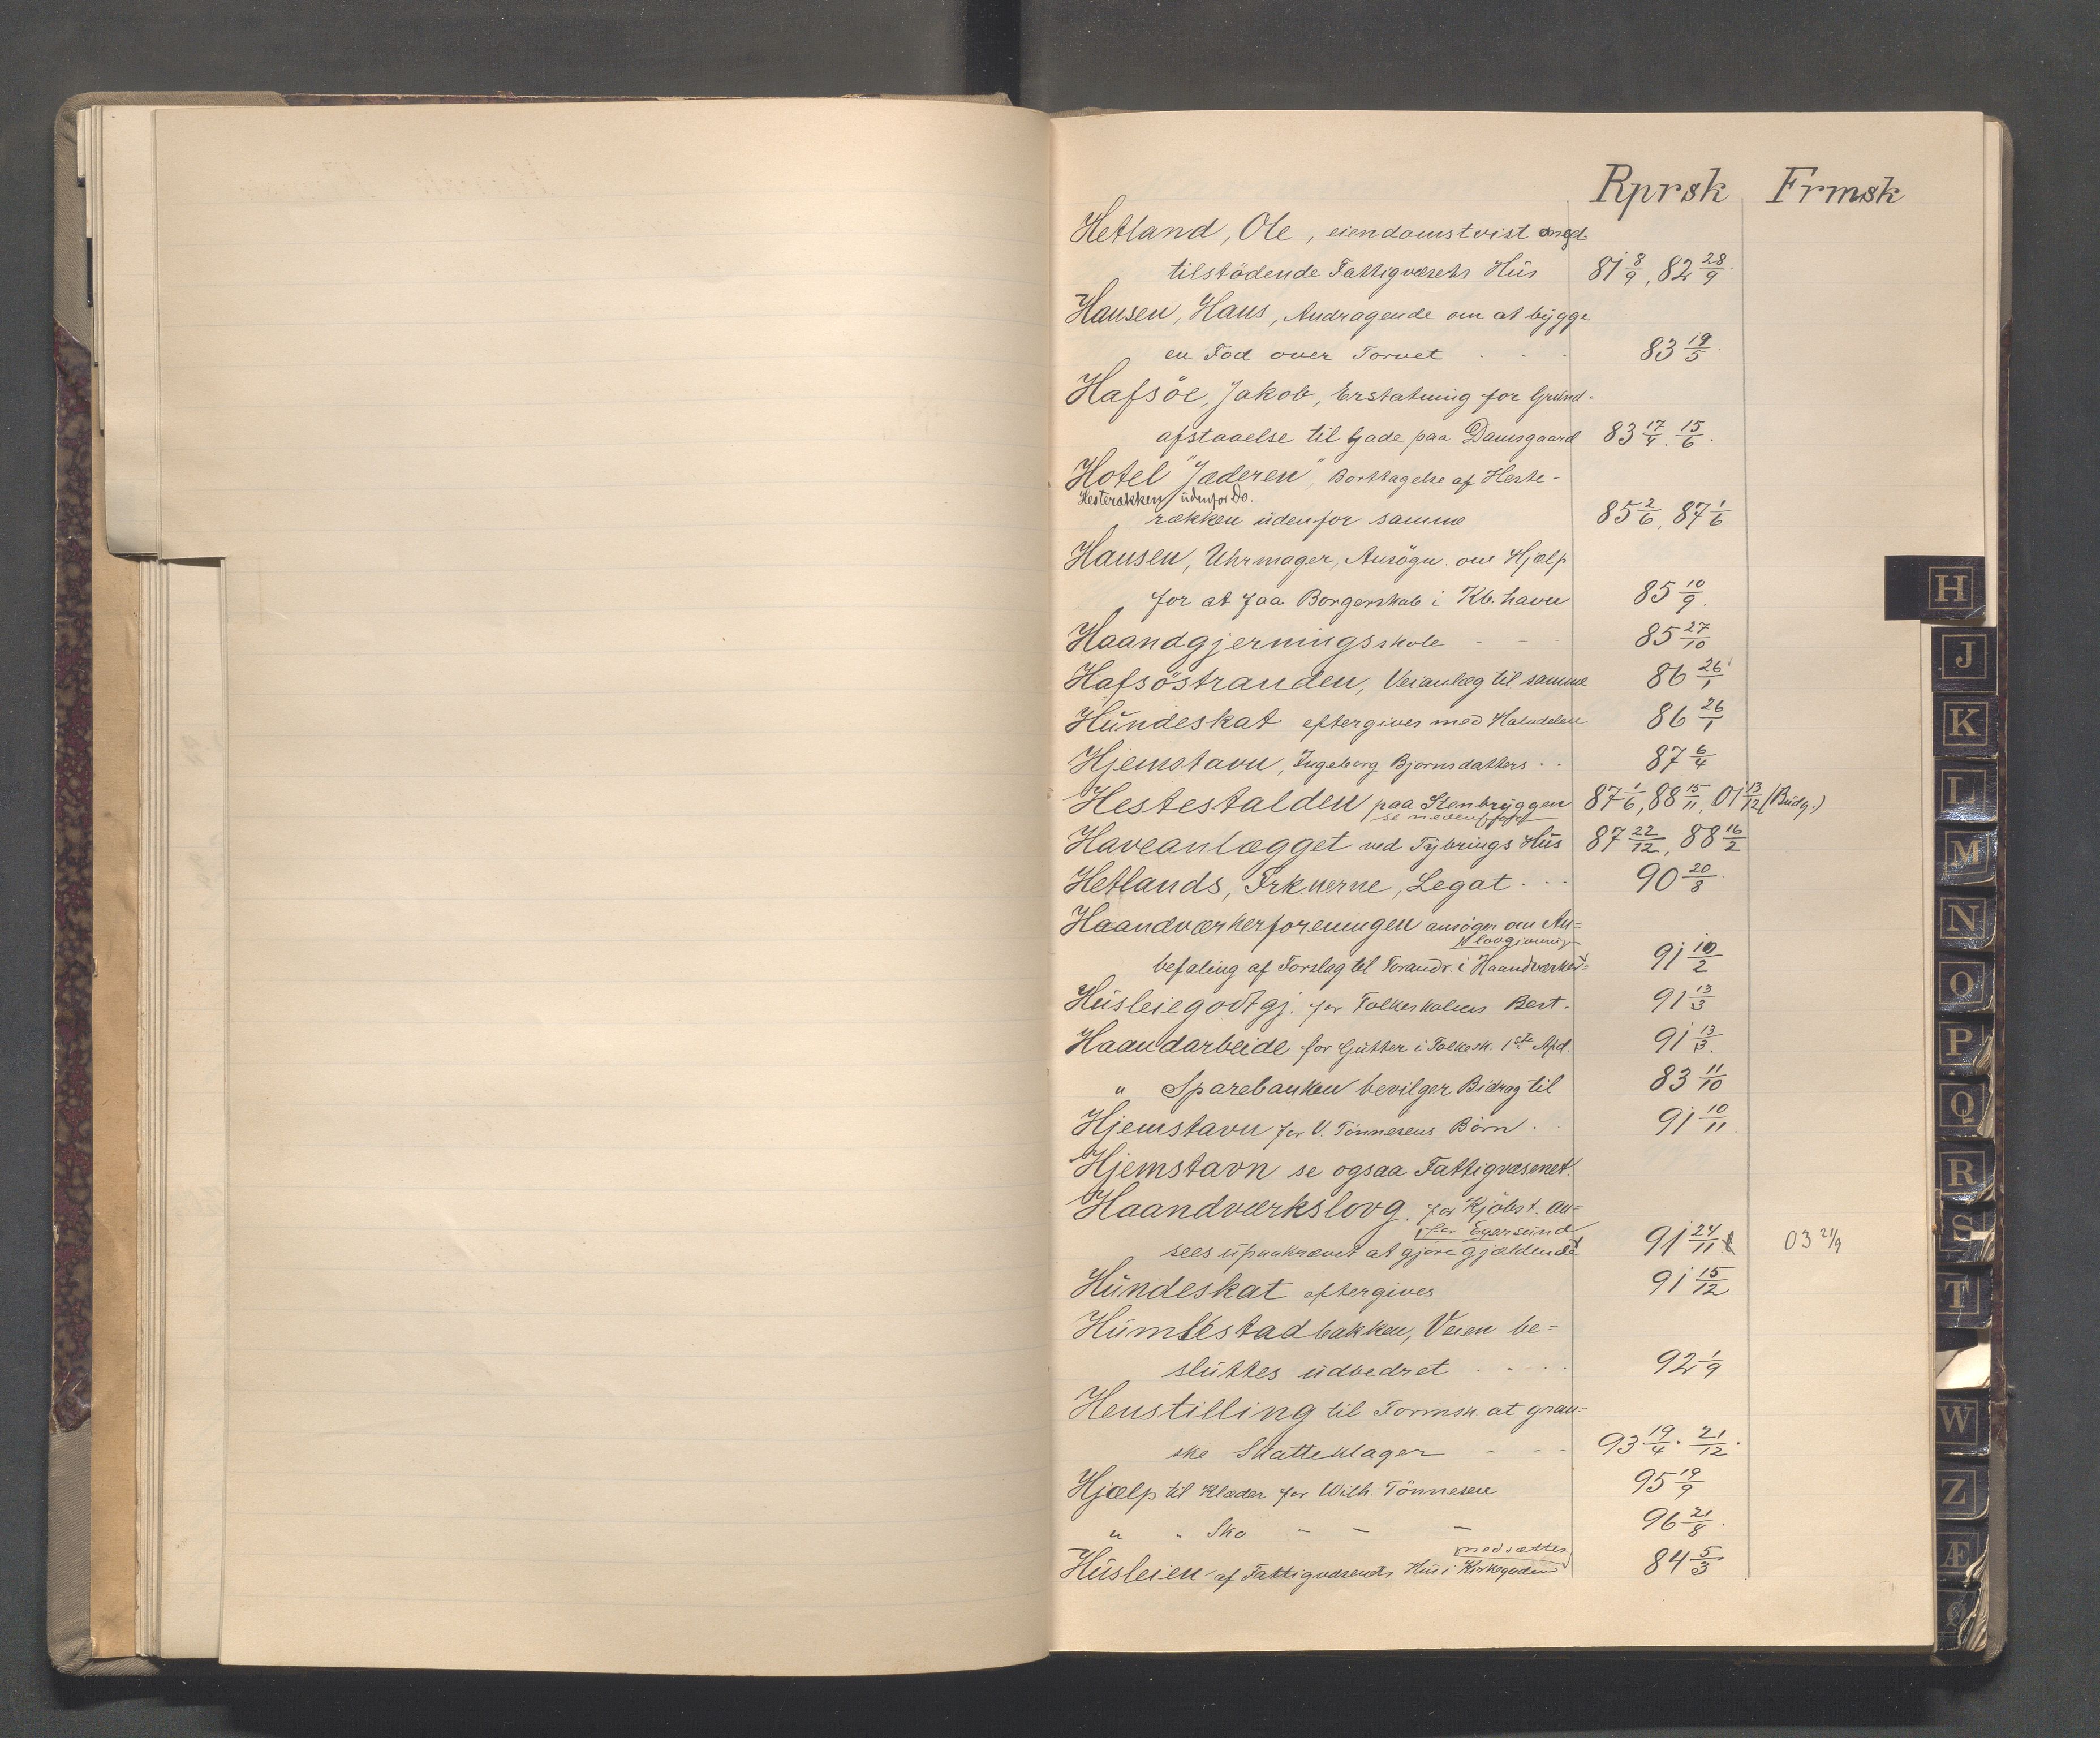 Rprsk Frmsk
Hetland, Ole, eiendomstvist angd.
tilstödende Fattigvæsets Hüs 81 8/9, 82 28/9.
Hansen, Hans, Andragende om at bygge
en Fod over Torvet . . . 83 19/5.
Hafsöe, Jakob, Erstatning for Gründ-
afstaaelse til Gade paa Damsgaard 83 17/4. 15/6.
Hotel "Jæderen", Borttagelse af Heste-
Hesterækken üdenfor Do.
rækken üdenfor samme 85 2/6, 87 1/6
Hansen, Uhrmager, Ansögn. om Hjælp
for at faa Borgerskab i Kb.havn 85 10/9.
Haandgjerningsskole - - - 85 27/10
Hafsöstranden, Veianlæg til samme 86 26/1
Hündeskat eftergives med Halvdelen 86 26/1
Hjemstavn, Ingeborg Bjornsdatters . . 87 6/4
Hestestalden paa Stenbryggen 87 1/6, 88 15/11, 01 13/12 (Büdg.)
se nedenfor
Haveanlægget ved Tybrings Hüs 87 22/12, 88 16/2
Hetlands, Frknerne, Legat . . . 90 20/8.
Haandværkerforeningen ansöger om An=
lovgivning
befaling af Forslag til Forandr. i Haandværker= 91 10/2
Hüsleiegodtgj. for Folkeskolens Best. 91 13/3
Haandarbeide for Gütter i Folkesk. 1ste Afd. 91 13/3.
" Sparebanken bevilger Bidrag til 83 11/10
Hjemstavn for V. Tönnesens Börn . . 91 10/11.
Hjemstavn se ogsaa Fattigvæsenet.
Haandværkslovg. for Kjöbst. an=
for Egersünd
sees üpaakrævet at gjöre gjældende 91 24/11 03 21/9
Hündeskat eftergives 91 15/12
Hümlestadbakken, Veien be=
slüttes üdbedret . . . . 92 1/9
Henstilling til Formsk. at gran=
ske Skatteklager - - - 93 19/4. 21/12.
Hjælp til Klæder for Wilh. Tönnesen 95 19/9
" " Sko - - - 96 21/8.
nedsættes
Hüsleien af Fattigvæsenets Hüs i Kirkegaden 84 5/3
H
J
K
L
M
N
O
P
Q
R
S
T
W
Z
Æ
Ø